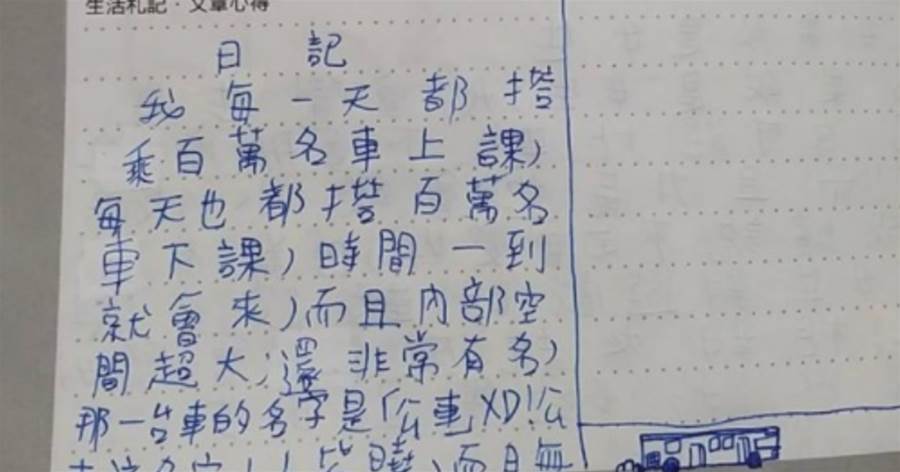 生活札記・文章心得
日 記
我每一天都搭
乘百萬名車上課,
每天也都搭百萬名
車下課,時間一到
就會來,而且內部空
間超大,還非常有名,
那一台車的名字是「公車XD!公